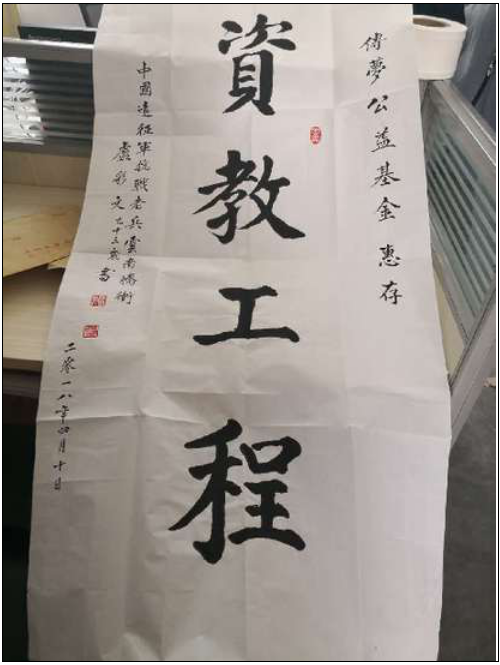 倚夢公益基金惠存
資教工程
中國遠征軍抗戰老兵雲南騰衝
盧彩文九十三歲書
二零一八年四月十日